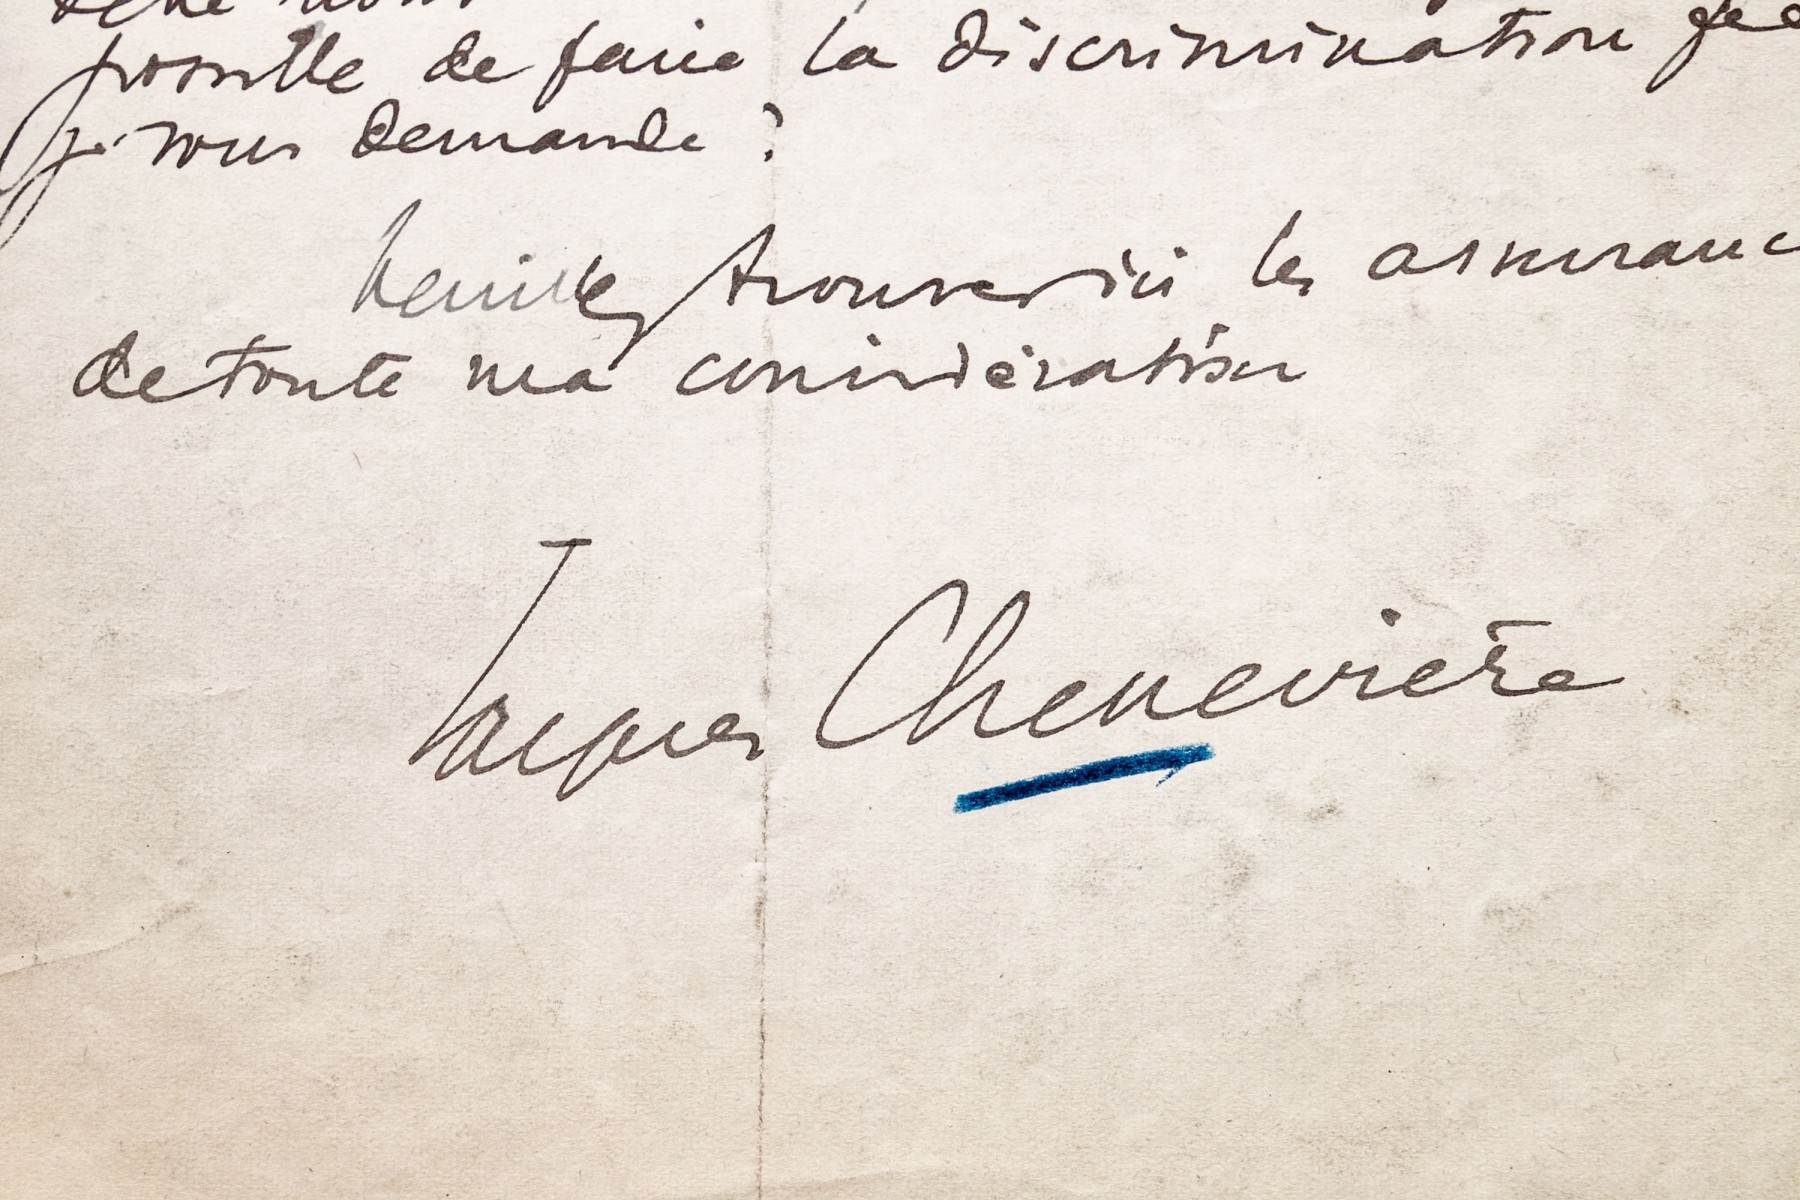 possible de faire la discrimination que
je vous demande ?
Veuillez trouver ici les assuranc
de toute ma considération
Jacques Chenevière